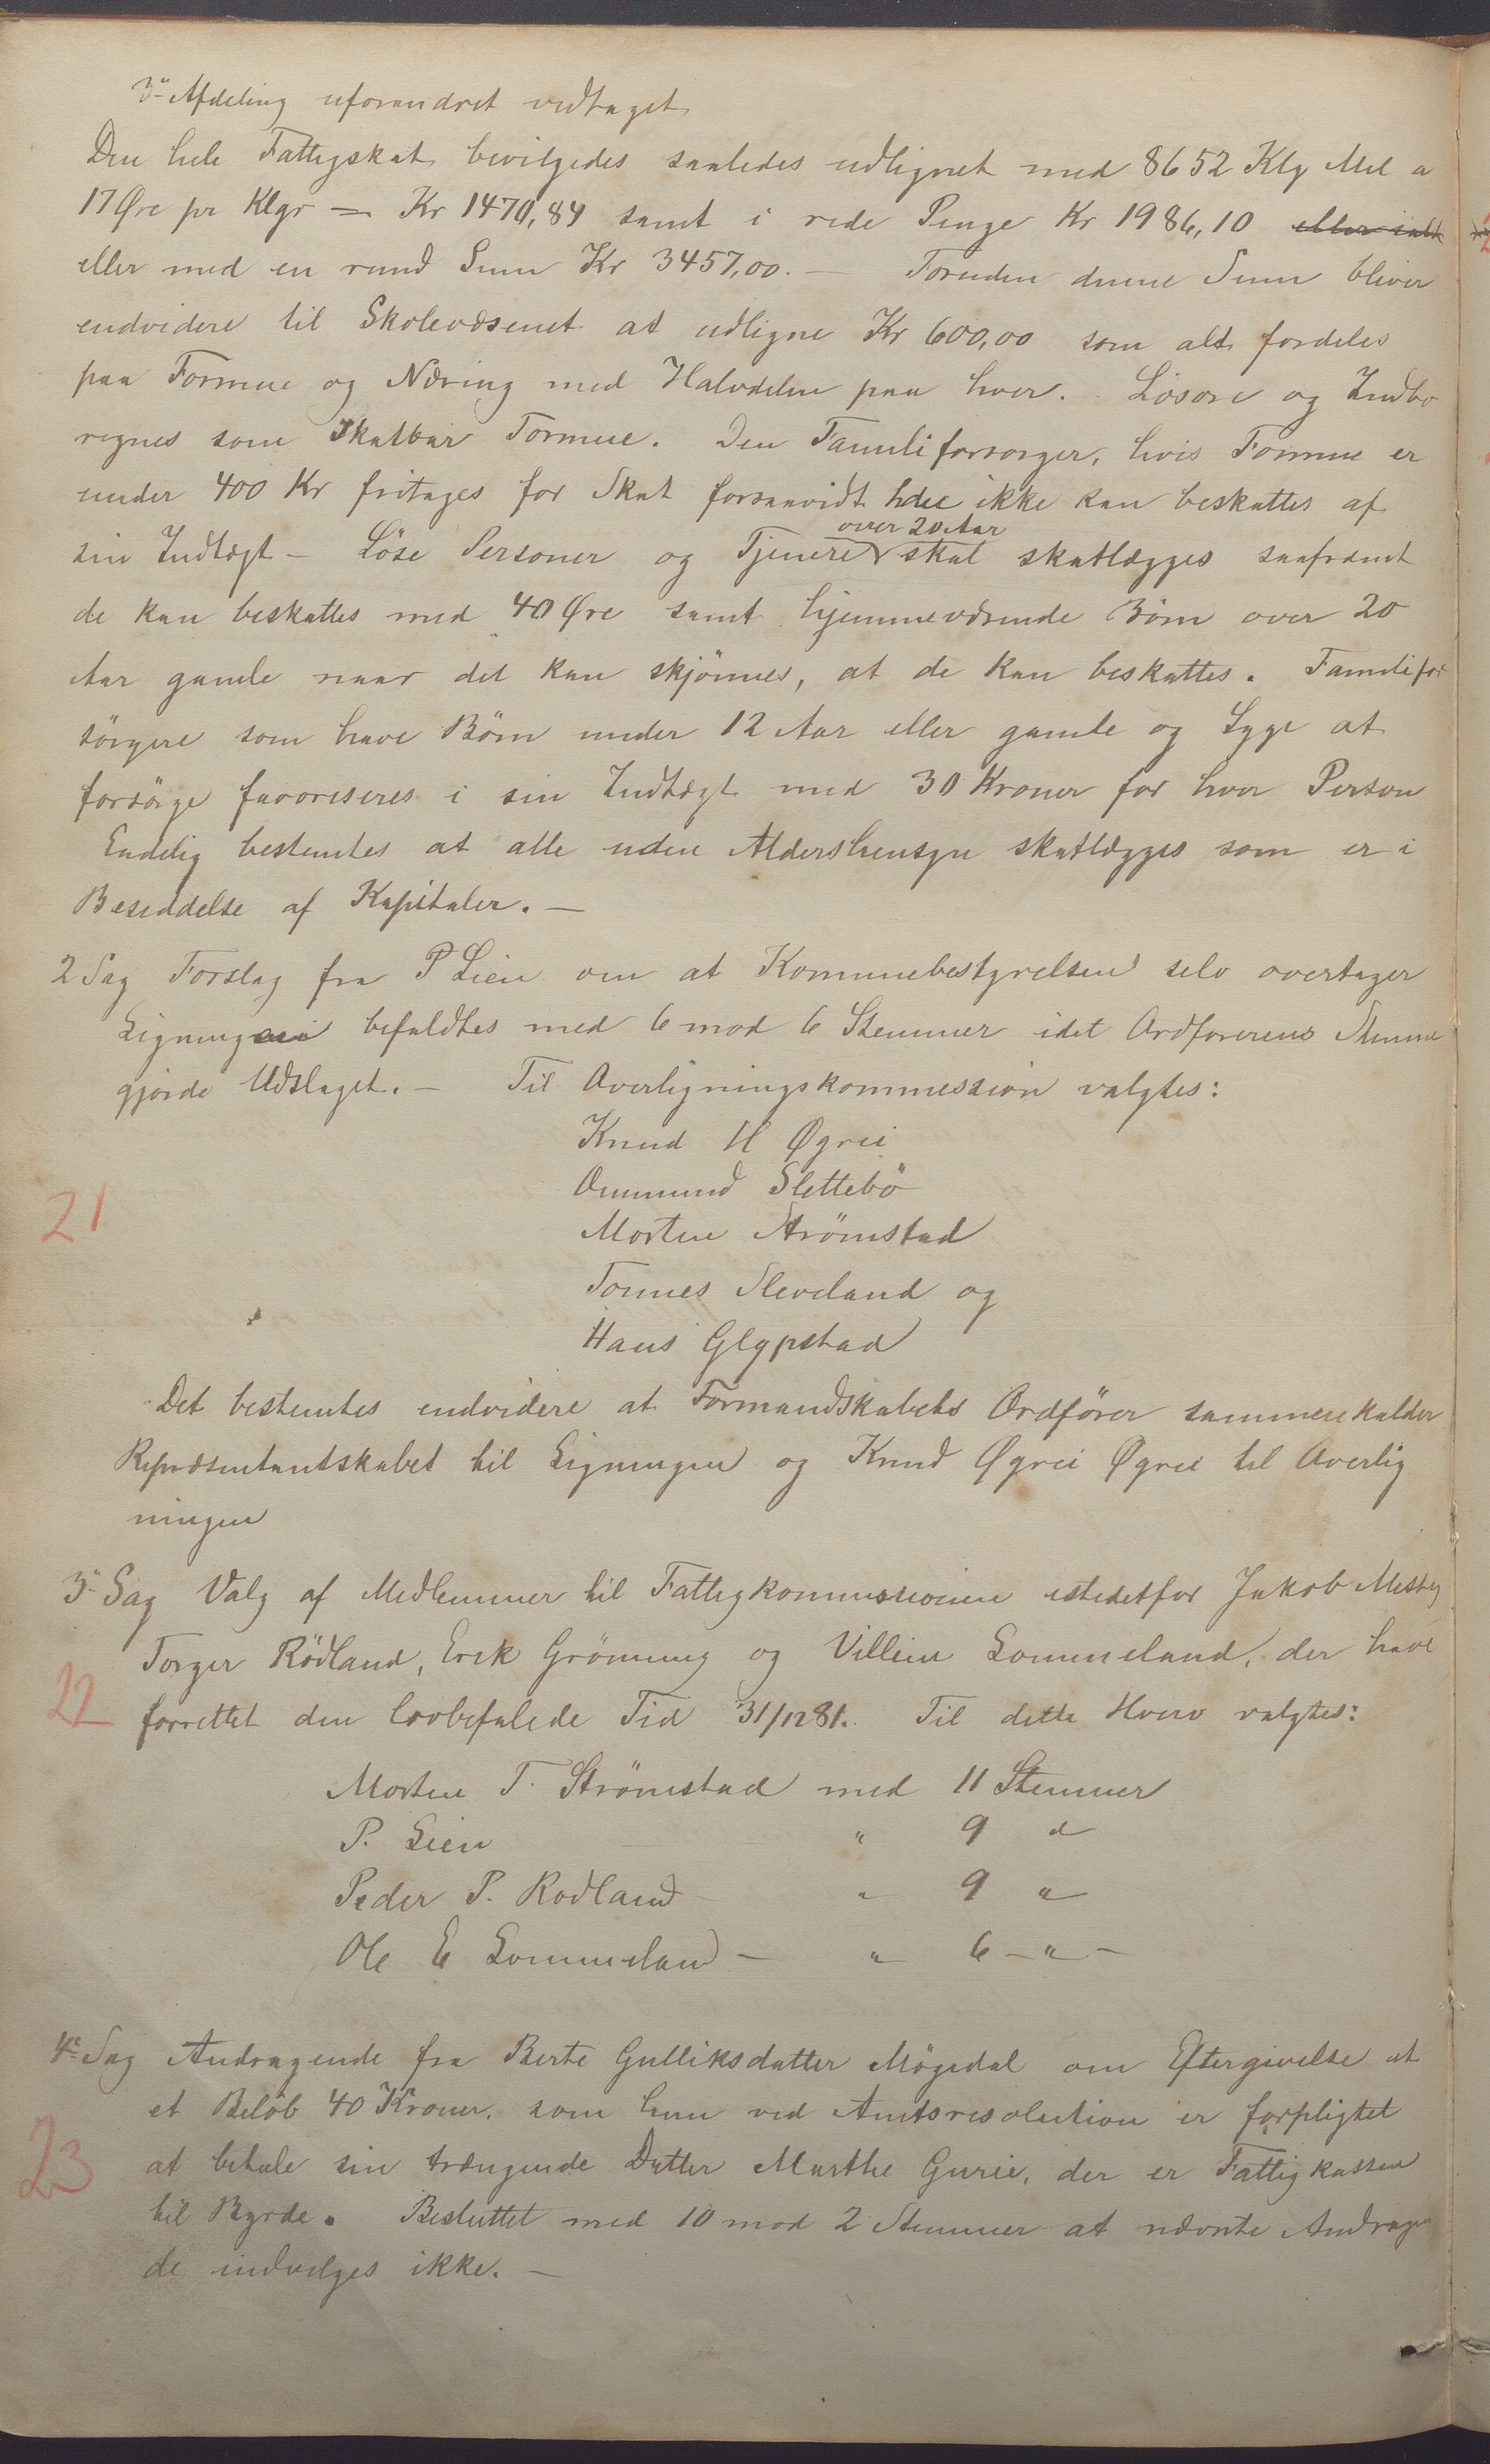 3die Afdeling uforandret vedtaget
Den hele Fattigskat bevilgedes saaledes udlignet med 8652 Klg Mel a
17 Øre pr Klgr = Kr 1470,84 samt i rede Penge Kr 1986,10 eller ialt
eller med en rund Sum Kr 3457,00. — Foruden denne Sum bliver
endvidere til Skolevæsenet at udligne Kr 600,00 som alt fordeles
paa Formue og Næring med Halvdelen paa hver. Lösøre og Indbo
regnes som Skatbar Formue. Den Familiforsorger, hvis Formue er
under 400 Kr fritages for Skat forsaavidt ikke kan beskattes af
over 20 Aar
sin Indtægt – Löse Personer og Tjenere skal skatlægges saafremt
de kan beskattes med 40 Øre samt hjemmeværende Börn over 20
Aar gamle naar det kan skjönnes, at de kan beskattes. Familifor
sörgere som have Börn under 12 Aar eller gamle og Syge at
forsörge favoriseres i sin Indtægt med 30 Kroner for hver Person
Endelig bestemtes at alle uden Aldershensyn skatlægges som er i
Besiddelse af Kapitaler. —
2 Sag Forslag fra P Lien om at Kommunebestyrelsen selv overtager
Ligningen befaldtes med 6 mod 6 Stemmer idet Ordforerens Stemme
gjorde Udslaget. — Til Overligningskommission valgtes:
Knud H Øgrei
Ommund Slettebö
21
Morten Strömstad
Tonnes Sleveland og
Hans Glypstad
Det bestemtes endvidere at Formandskabets Ordförer sammenkalder
Repræsentantskabet til Ligningen og Knud Øgrei Øgrei til Overlig
ningen
3die Sag Valg af Medlemmer til Fattigkommissionen istedetfor Jakob Mesty
Torger Rödland, Erik Gröning og Villem Lommeland, der have
22
forrettet den lovbefalede Tid 31/12 81. Til dette Hverv valgtes:
Morten T. Strömstad med 11 Stemmer
P. Lien " 9 "
Peder P. Rodland " 9 "
Ole E Lommeland — " 6 – " –
4de Sag Andragende fra Berte Gulliksdatter Mögedal om Eftergivelse at
et Belöb 40 Kroner, som hun ved Amtsresolution er forpligtet
23
at betale sin trængende Datter Marthe Gurie, der er Fattigkassen
til Byrde. Besluttet med 10 mod 2 Stemmer at nævnte Andragen
de indvilges ikke. —